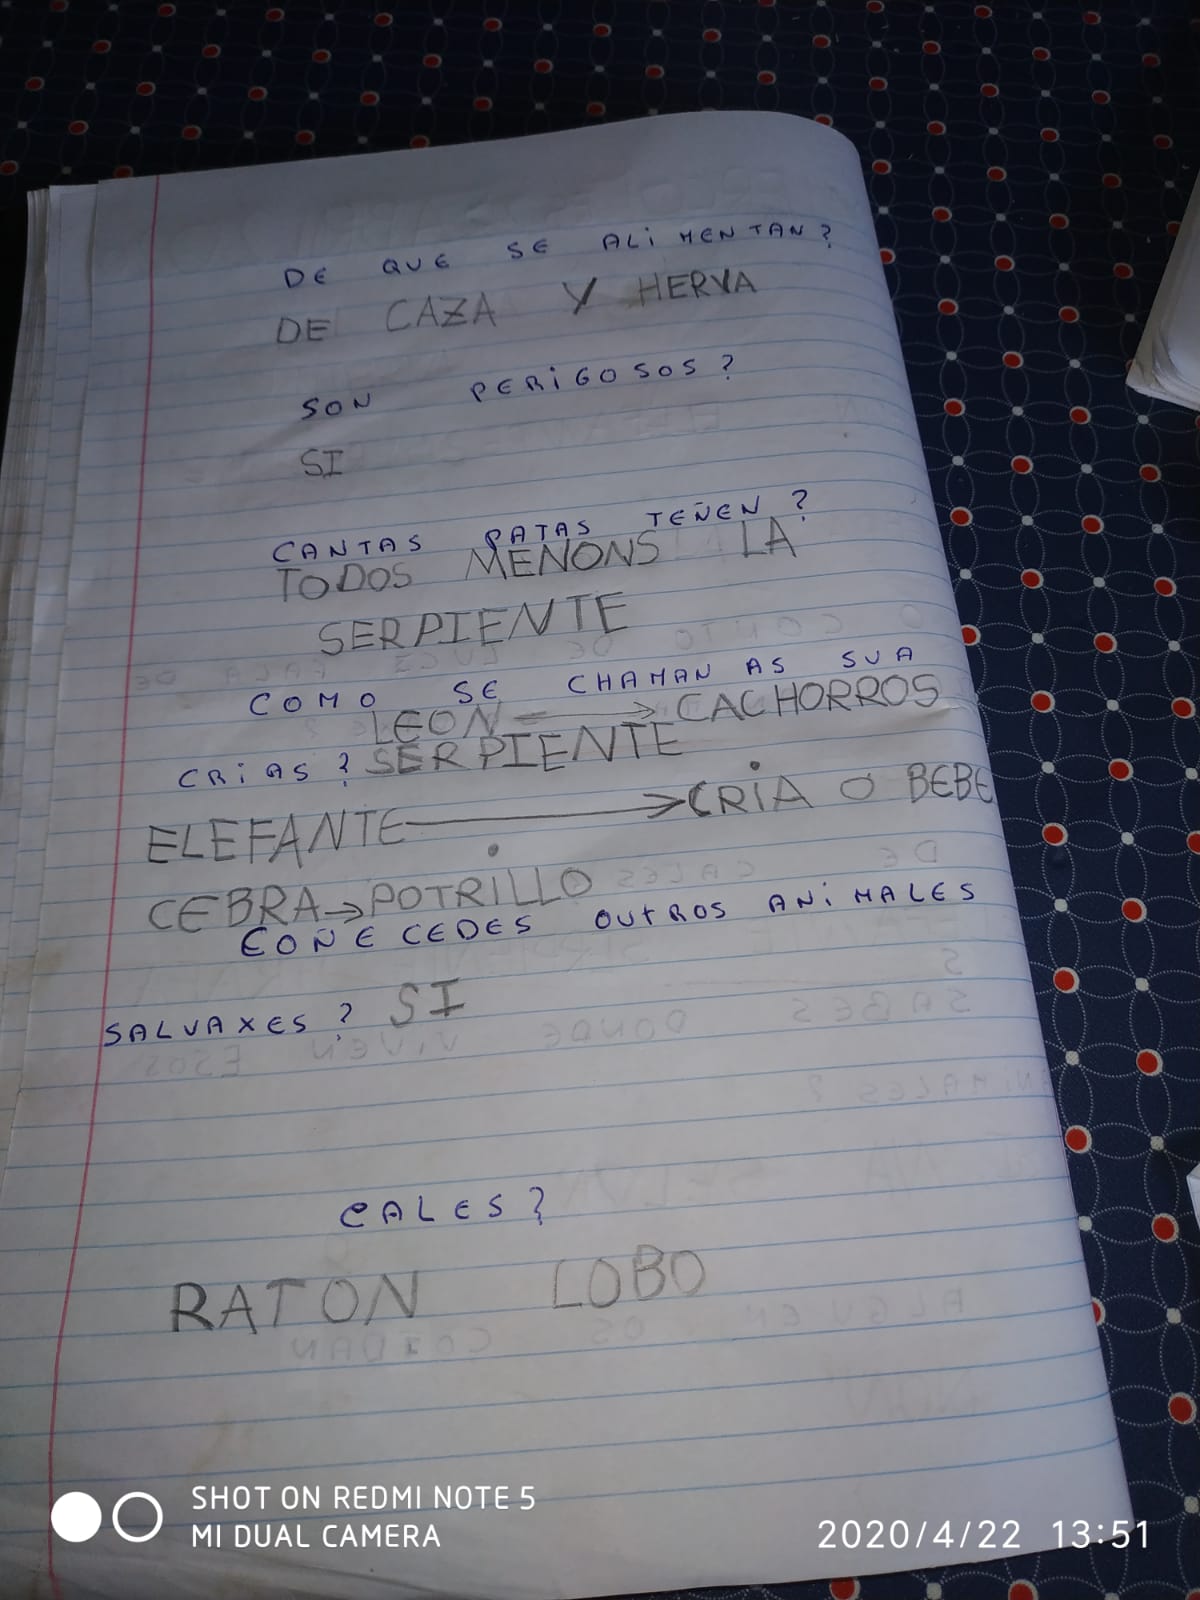 DE QUE SE ALIMENTAN?
DE CAZA Y HERVA
SON PERIGOSOS?
SI
CANTAS PATAS TEÑEN?
TODOS MENONS LA
SERPIENTE
COMO SE CHAMAN AS SUA
LEON → CACHORROS
CRIAS? SERPIENTE
ELEFANTE → CRIA O BEBE
CEBRA → POTRILLO
COÑECEDES OUTROS ANIMALES
SALVAXES? SI
CALES?
RATON LOBO
SHOT ON REDMI NOTE 5
MI DUAL CAMERA
2020/4/22 13:51